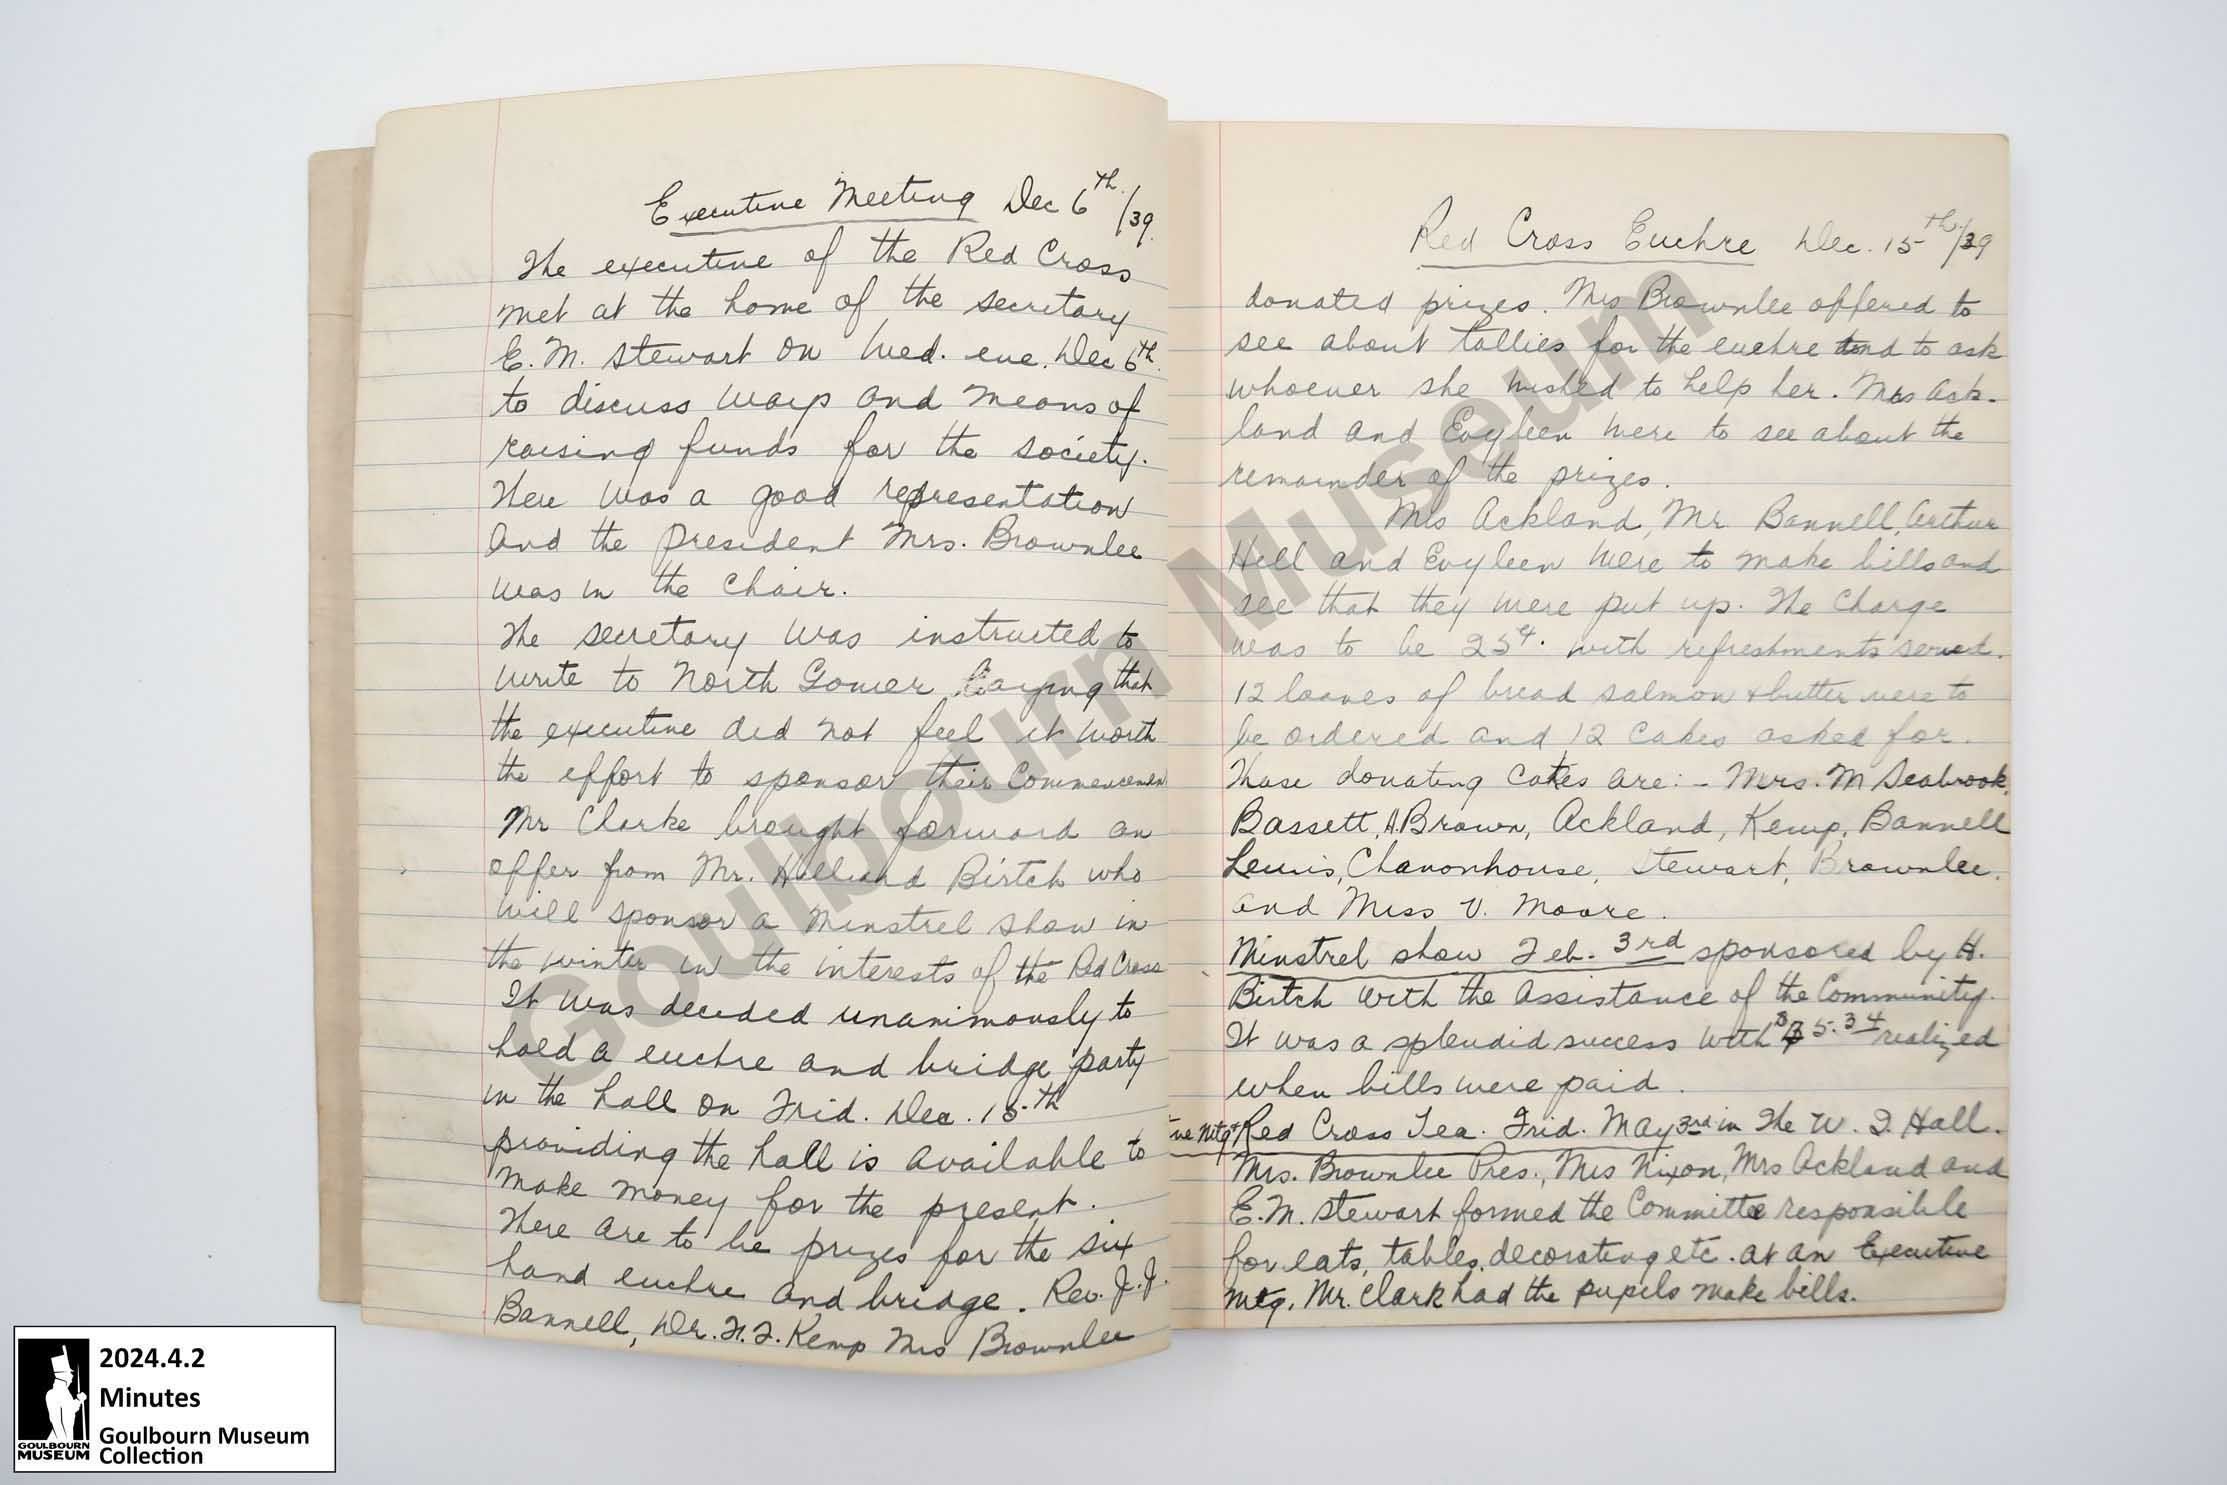 Executive Meeting Dec 6th/39.
The executive of the Red Cross
met at the home of the secretary
E. M. Stewart on Wed. eve. Dec 6th.
to discuss ways and means of
raising funds for the society.
There was a good representation
and the president Mrs. Brownlee
was in the chair.
The secretary was instructed to
write to North Gower saying that
the executive did not feel it worth
the effort to sponsor their Commencement
Mr Clarke brought forward an
offer from Mr. Hilliard Birtch who
will sponsor a Minstrel show in
the winter in the interests of the Red Cross
It was decided unanimously to
hold a euchre and bridge party
in the hall on Frid. Dec. 15th
providing the hall is available to
make money for the present.
There are to be prizes for the six
hand euchre and bridge. Rev. J. J.
Bannell, Dr. Kemp Mrs Brownlee
Red Cross Euchre Dec. 15th/39
donated prizes. Mrs Brownlee offered to
see about tallies for the euchre and to ask
whoever she wished to help her. Mrs Ack-
land and Evyleen were to see about the
remainder of the prizes.
Mrs Ackland, Mr Bannell, Arthur
Hill and Evyleen were to make bills and
see that they were put up. The charge
was to be 25¢. with refreshments served.
12 loaves of bread salmon & butter were to
be ordered and 12 cakes asked for.
Those donating cakes are:- Mrs. M Seabrook,
Bassett, A. Brown, Ackland, Kemp, Bannell
Lewis, Chanonhouse, Stewart, Brownlee,
and Miss V. Moore.
Minstrel show Feb. 3rd sponsored by H.
Birtch with the assistance of the Community.
It was a splendid success with 5.34 realized
when bills were paid.
ve Mtg & Red Cross Tea. Frid. May 3rd in The W. I. Hall.
Mrs. Brownlee Pres., Mrs Nixon, Mrs Ackland and
E. M. Stewart formed the Committee responsible
for eats, tables, decorating etc. at an Executive
mtg, Mr. Clark had the pupils make bills.
Goulbourn Museum
2024.4.2
Minutes
Goulbourn Museum
Collection
GOULBOURN
MUSEUM